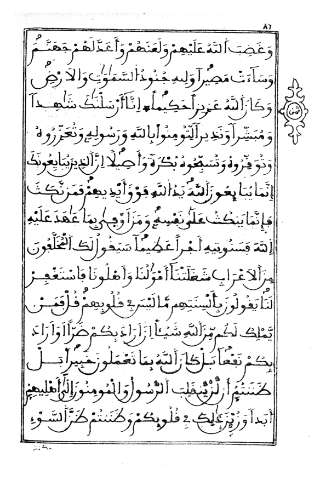 وَغَضِبَ اَللَّهُ عَلَيْهِمْ وَلَعَنَهُمْ وَأَعَدَّ لَهُمْ جَهَنَّمَ
وَسَآءَتْ مَصِيراً وَلِلهِ جُنُودُ اُلسَّمَٰوَٰتِ وَالَارْضِ
وَكَانَ اَللَّهُ عَزِيزاً حَكِيماً اِنَّآ أَرْسَلْنَٰكَ شَٰهِداً
وَمُبَشِّراً وَنَذِيراً لِّتُومِنُواْ بِاللَّهِ وَرَسُولِهِ وَتُعَزِّرُوهُ
وَتُوَقِّرُوهُ وَتُسَبِّحُوهُ بُكْرَةً وَأَصِيلاً اِنَّ اَلذِينَ يُبَايِعُونَكَ
إِنَّمَا يُبَايِعُونَ اَللَّهَ يَدُ اُللَّهِ فَوْقَ أَيْدِيهِمْ فَمَن نَّكَثَ
فَإِنَّمَا يَنكُثُ عَلَىٰ نَفْسِهِ وَمَنَ اَوْفَىٰ بِمَا عَٰهَدَ عَلَيْهِ
اِللَّهَ فَسَنُوتِيهِ أَجْراً عَظِيماً سَيَقُولُ لَكَ اَلْمُخَلَّفُونَ
مِنَ اَلَاعْرَابِ شَغَلَتْنَآ أَمْوَٰلُنَا وَأَهْلُونَا فَاسْتَغْفِرْ
لَنَا يَقُولُونَ بِأَلْسِنَتِهِم مَّا لَيْسَ فِي قُلُوبِهِمْ قُلْ فَمَنْ
يَّمْلِكُ لَكُم مِّنَ اَللَّهِ شَيْـاً اِنَ اَرَادَ بِكُمْ ضَرّاً اَوَ اَرَادَ
بِكُمْ نَفْعاً بَلْ كَانَ اَللَّهُ بِمَا تَعْمَلُونَ خَبِيراً بَلْ
ظَنَنتُمُ أَن لَّنْ يَّنقَلِبَ اَلرَّسُولُ وَالْمُومِنُونَ إِلَىٰ أَهْلِيهِمُ
أَبَداً وَزُيِّنَ ذَٰلِكَ فِي قُلُوبِكُمْ وَظَنَنتُمْ ظَنَّ اَلسَّوْءِ